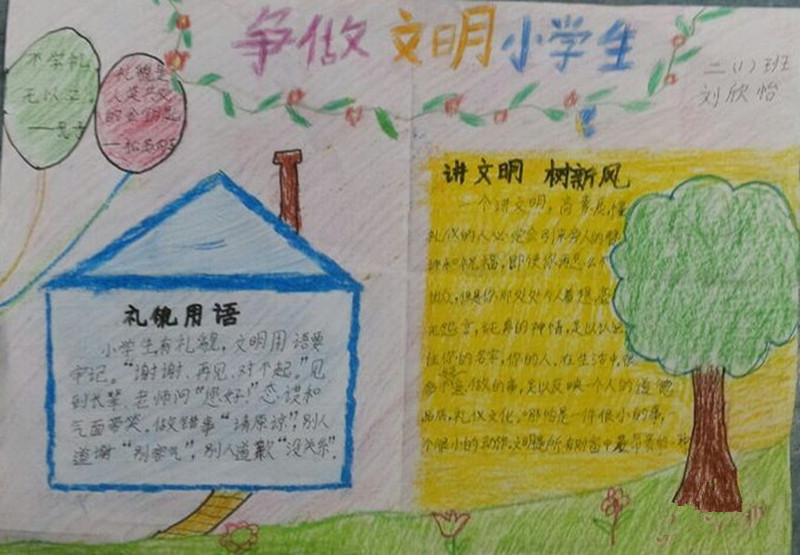 争做文明小学生
二(1)班
刘欣怡
不学礼,
无以立。
礼貌是
人类共处
的金钥匙
讲文明 树新风
一个讲文明,高素质,懂
礼仪的人必定会引来旁人的赞
和祝福,即使你再怎么不
出众,但是你那处处为人着想,毫
无怨言,纯真的神情,足以让人
住你的名字,你的人,在生活中,很
多不做的事,足以反映一个人的道德
品质,礼仪文化。哪怕是一件很小的事,
个很小的动作。文明是所有财富中最昂贵的一
礼貌用语
小学生有礼貌,文明用语要
牢记。“谢谢、再见、对不起。”见
到长辈、老师问“您好!”态误和
气面带笑。做错事“请原谅”,别人
道谢“别客气”,别人道歉“没关系”.